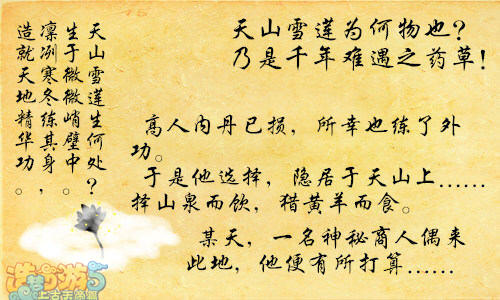 天山雪莲生何处？
生于微微峭壁中。
凛冽寒冬练其身，
造就天地精华功。
天山雪莲为何物也？
乃是千年难遇之药草！
高人内丹已损，所幸也练了外
功。
于是他选择，隐居于天山上……
择山泉而饮，猎黄羊而食。
某天，一名神秘商人偶来
此地，他便有所打算……
造梦西游5